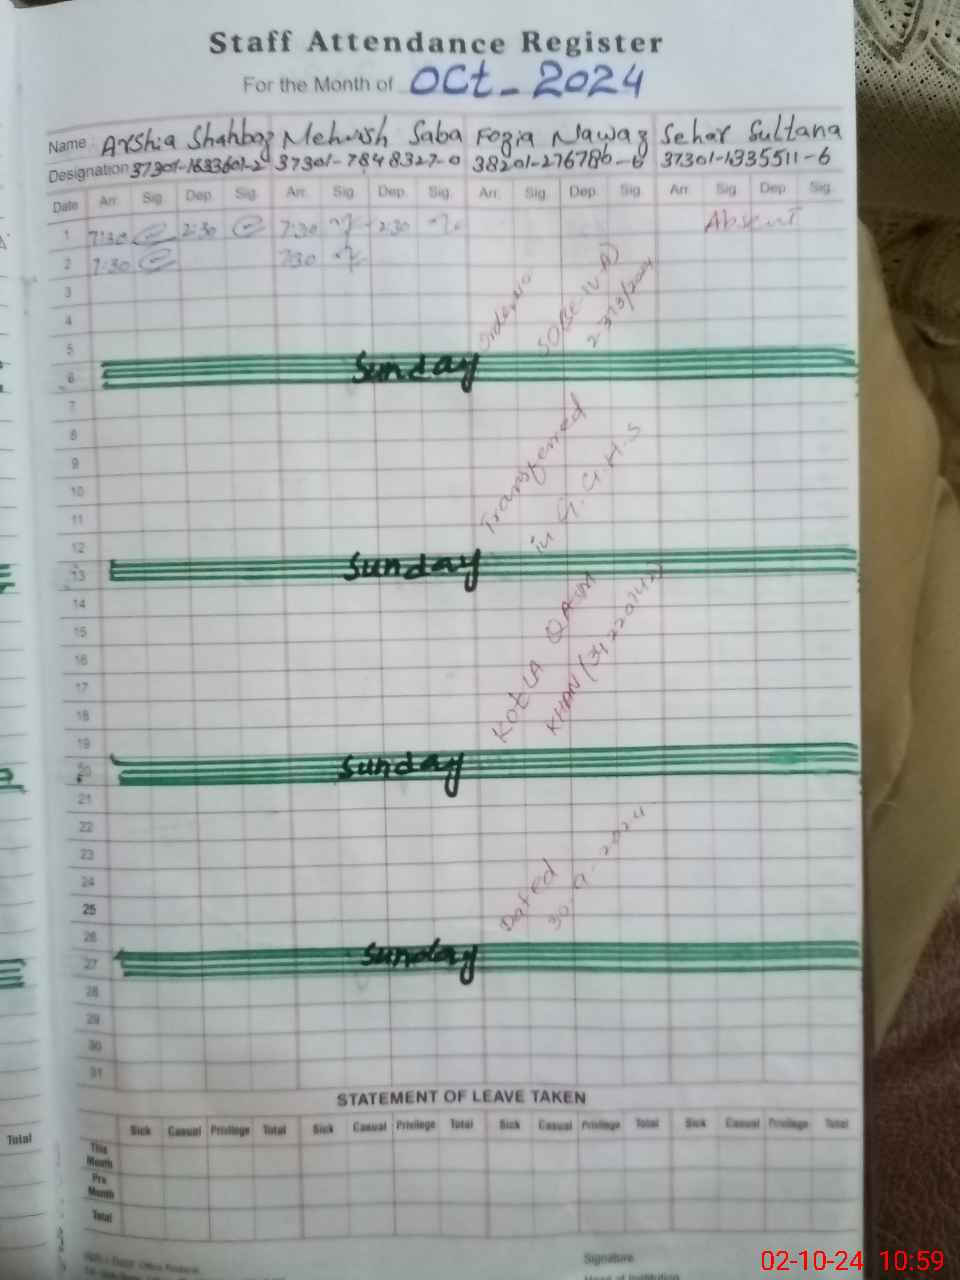 Staff Attendance Register
For the Month of Oct - 2024
Name Arshia Shahbaz Mehwish Saba Fozia Nawaz Sehar Sultana
Designation 37301-1633601-2 37301-7848327-0 38201-276786-6 37301-1335511-6
Date Arr. Sig. Dep. Sig. Arr. Sig. Dep. Sig. Arr. Sig. Dep. Sig. Arr. Sig. Dep. Sig.
1 7:30 2:30 7:30 2:30 Absent
2 7:30 7:30
3
4
5
6 Sunday
7
8
9
10
11
12
13 Sunday
14
15
16
17
18
19
20 Sunday
21
22
23
24
25
26
27 Sunday
28
29
30
31
Order No
SO(SE-IV-A)
2-373/2024
Transferred
in G.G.H.S
KOTLA QASIM
KHAN
Dated
30-9-2024
STATEMENT OF LEAVE TAKEN
Sick Casual Privilege Total Sick Casual Privilege Total Sick Casual Privilege Total Sick Casual Privilege Total
This Month
Pre Month
Total
Total
Signature
Head of Institution
02-10-24 10:59